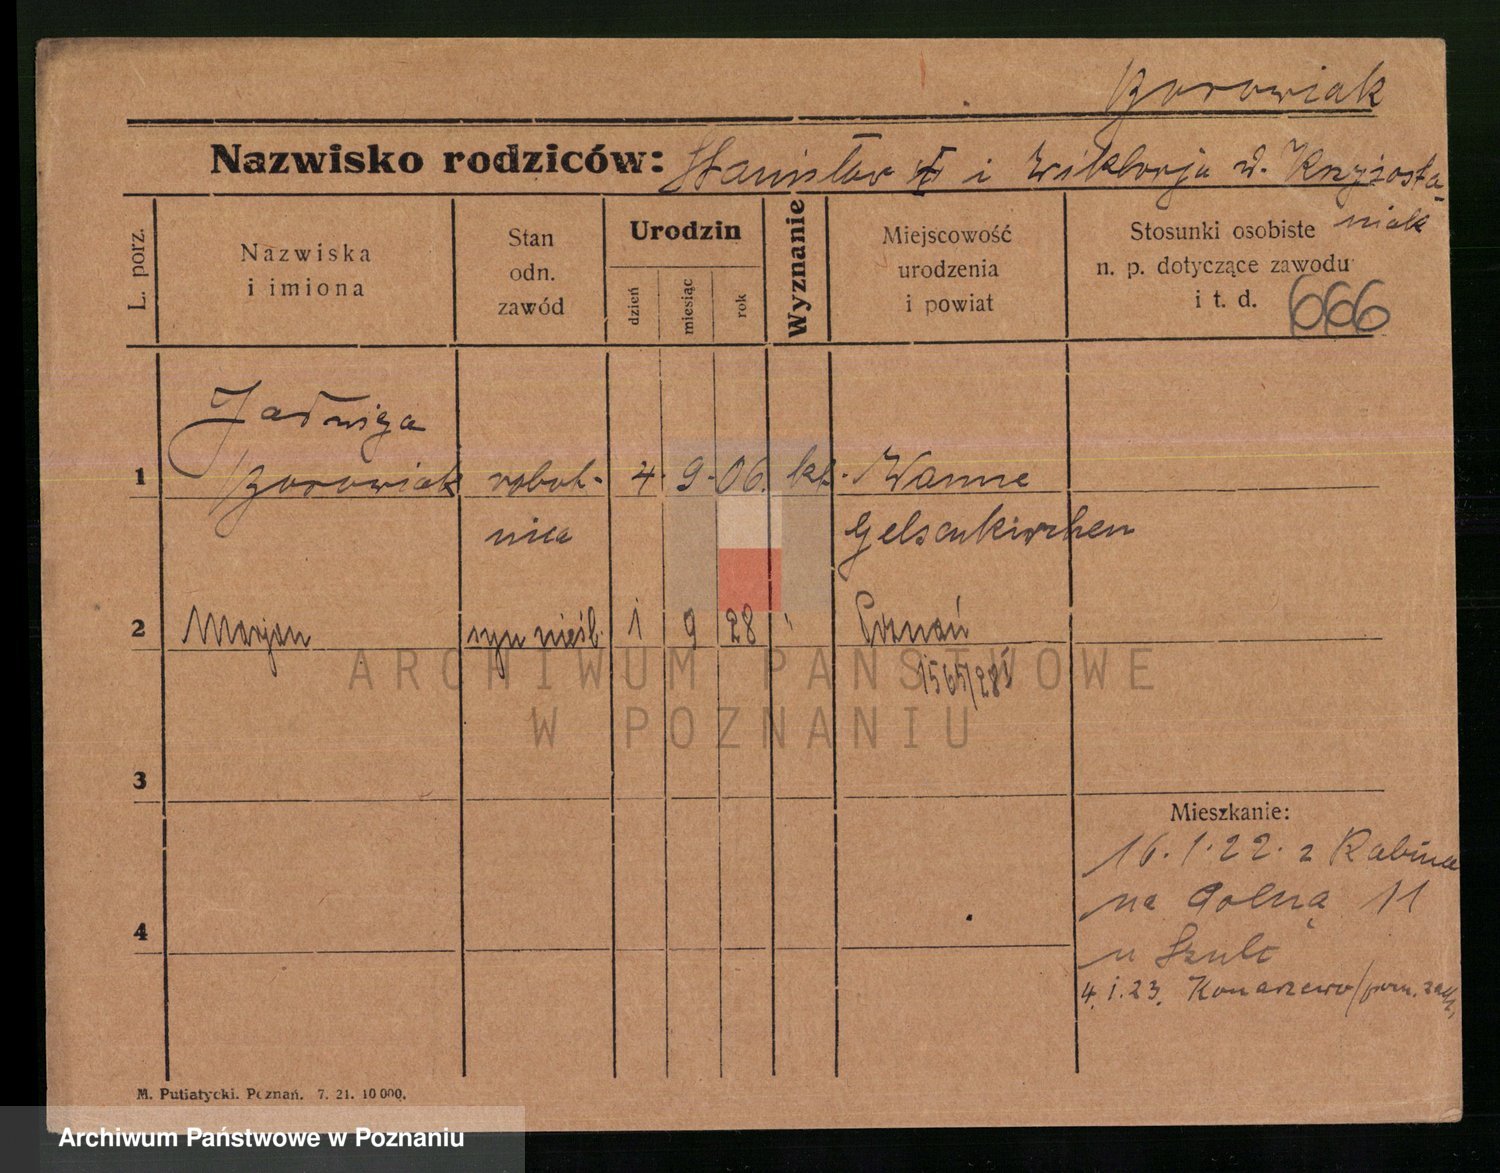 Borowiak
Nazwisko rodziców: Stanisław i Wiktorja d. Krzyżosta-
niak
L. porz.
Nazwiska
i imiona
Stan
odn.
zawód
Urodzin
dzień
miesiąc
rok
Wyznanie
Miejscowość
urodzenia
i powiat
Stosunki osobiste
n. p. dotyczące zawodu
i t. d.
666
Jadwiga
1 Borowiak robot- 4. 9. 06. kat. Wanne
nica Gelsenkirchen
2 Marjan syn nieśl. 1 9 28 " Poznań
3
Mieszkanie:
16.1.22. z Rabina
na Polną 11
4
u Szulc
4.1.23. Konarzewo
M. Putiatycki. Poznań. 7. 21. 10 000.
ARCHIWUM PAŃSTWOWE
W POZNANIU
Archiwum Państwowe w Poznaniu